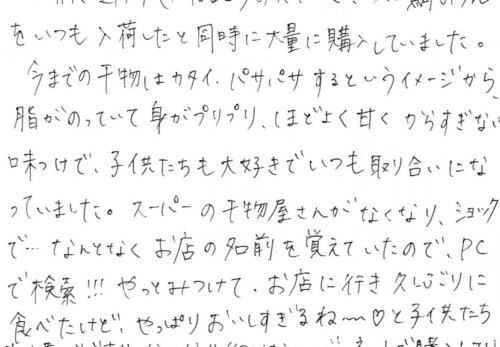 をいつも入荷したと同時に大量に購入していました。
今までの干物はカタイ、パサパサするというイメージから、
脂がのっていて身がプリプリ、ほどよく甘くからすぎない
味つけで、子供たちも大好きでいつも取り合いにな
っていました。スーパーの干物屋さんがなくなり、ショック
で…なんとなくお店の名前を覚えていたので、PC
で検索!!!やっとみつけて、お店に行き久しぶりに
食べたけど、やっぱりおいしすぎるね〜♡と子供たち